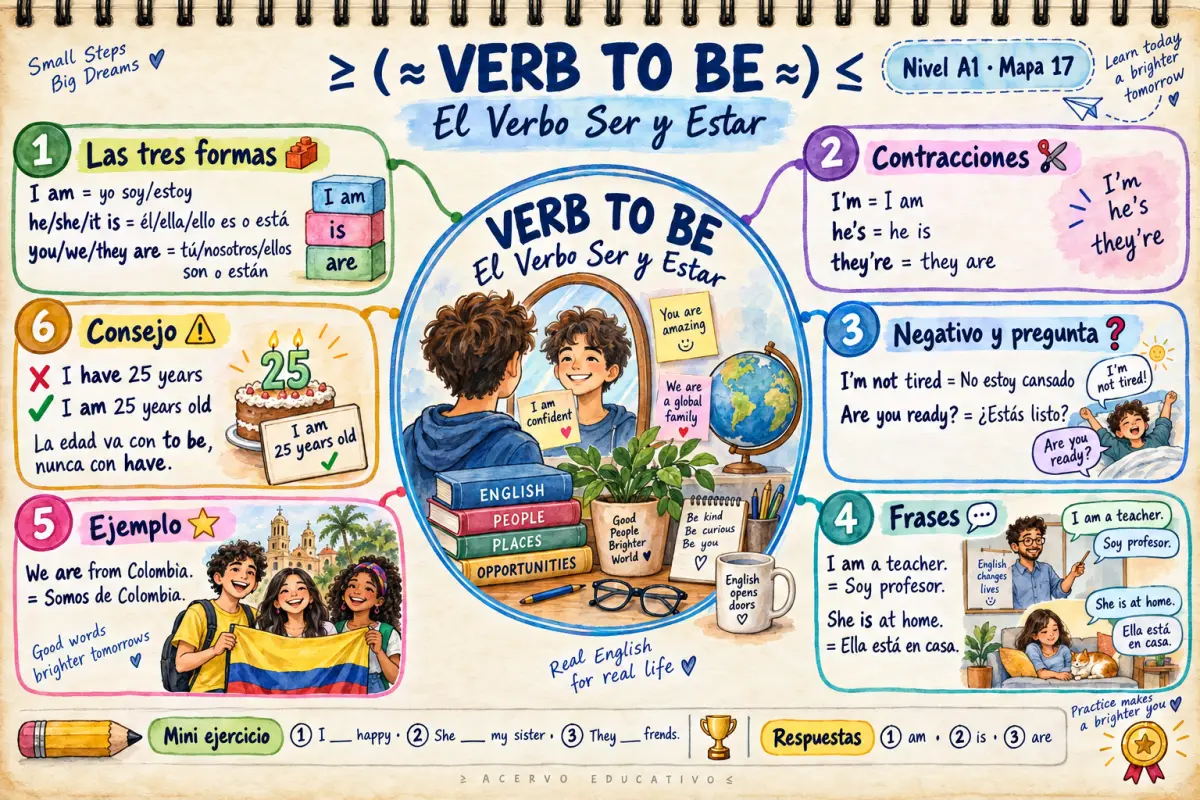 Small Steps
Big Dreams
≥ (≈ VERB TO BE ≈) ≤
El Verbo Ser y Estar
Nivel A1 · Mapa 17
Learn today
a brighter
tomorrow
1 Las tres formas
I am = yo soy/estoy
he/she/it is = él/ella/ello es o está
you/we/they are = tú/nosotros/ellos
son o están
I am
is
are
2 Contracciones
I'm = I am
he's = he is
they're = they are
I'm
he's
they're
VERB TO BE
El Verbo Ser y Estar
You are
amazing
I am
confident
We are
a global
family
ENGLISH
PEOPLE
PLACES
OPPORTUNITIES
Good
People
Brighter
World
Be kind
Be curious
Be you
English
opens
doors
Real English
for real life
3 Negativo y pregunta ?
I'm not tired = No estoy cansado
Are you ready? = ¿Estás listo?
I'm
not tired!
Are you
ready?
4 Frases
I am a teacher.
= Soy profesor.
She is at home.
= Ella está en casa.
English
changes
lives
I am a teacher.
Soy profesor.
She is at home.
Ella está
en casa.
5 Ejemplo
We are from Colombia.
= Somos de Colombia.
Good words
brighter tomorrows
6 Consejo
I have 25 years
I am 25 years old
La edad va con to be,
nunca con have.
25
I am
25 years old
Practice makes
a brighter you
Mini ejercicio 1 I __ happy · 2 She __ my sister · 3 They __ frends.
Respuestas 1 am · 2 is · 3 are
≥ ACERVO EDUCATIVO ≤